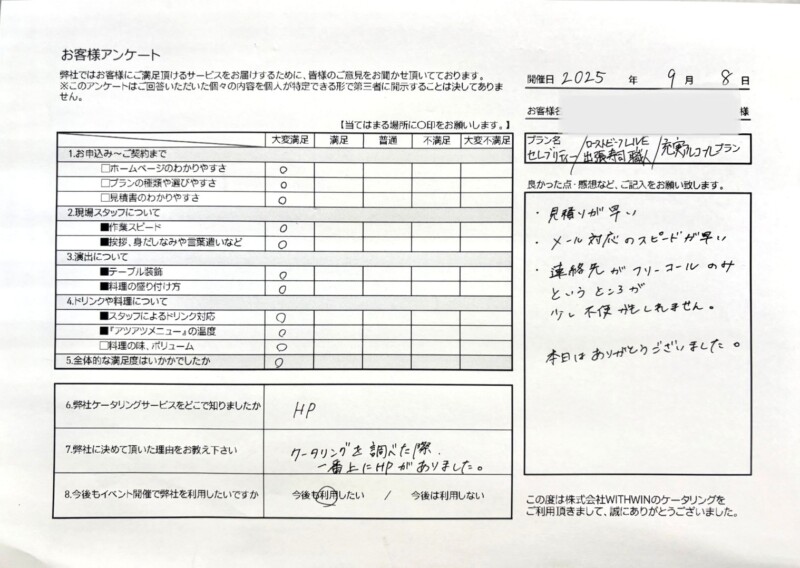 お客様アンケート
弊社ではお客様にご満足頂けるサービスをお届けするために、皆様のご意見をお聞かせ頂いております。
※このアンケートはご回答いただいた個々の内容を個人が特定できる形で第三者に開示することは決してありま
せん。
開催日 2025 年 9 月 8 日
お客様名 様
【当てはまる場所に〇印をお願いします。】
大変満足 満足 普通 不満足 大変不満足
1.お申込み～ご契約まで
□ホームページのわかりやすさ ○
□プランの種類や選びやすさ ○
□見積書のわかりやすさ ○
2.現場スタッフについて
■作業スピード ○
■挨拶、身だしなみや言葉遣いなど ○
3.演出について
■テーブル装飾 ○
■料理の盛り付け方 ○
4.ドリンクや料理について
■スタッフによるドリンク対応 ○
■『アツアツメニュー』の温度 ○
□料理の味、ボリューム ○
5.全体的な満足度はいかがでしたか ○
プラン名
セレブリティー/ローストビーフLIVE 出張寿司職人/充実アルコールプラン
良かった点・感想など、ご記入をお願い致します。
・見積りが早い
・メール対応のスピードが早い
・連絡先がフリーコールのみ
というところが
少し不便かもしれません。
本日はありがとうございました。
6.弊社ケータリングサービスをどこで知りましたか HP
7.弊社に決めて頂いた理由をお教え下さい ケータリングを調べた際、
一番上にHPがありました。
8.今後もイベント開催で弊社を利用したいですか 今後も利用したい / 今後は利用しない
この度は株式会社WITHWINのケータリングを
ご利用頂きまして、誠にありがとうございました。